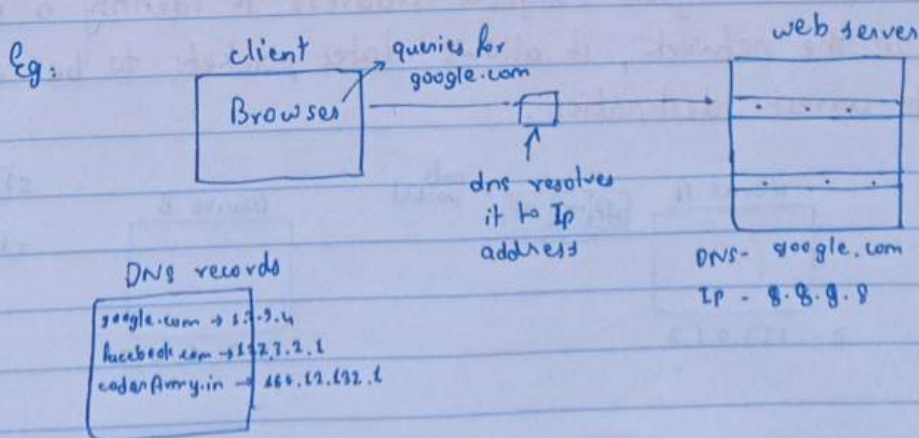 Eg:
client
Browser
queries for
google.com
dns resolves
it to Ip
address
web server
DNS - google.com
Ip - 8.8.8.8
DNS records
google.com →
facebook.com →
coderArmy.in →